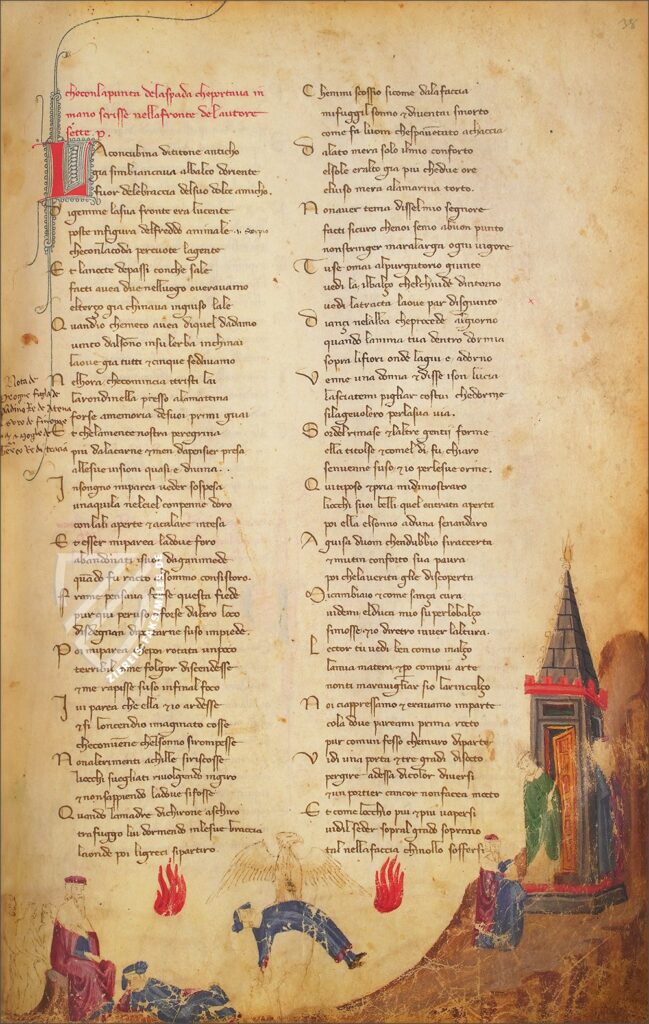 38
checonlapunta delaspada cheportaua in
mano scrisse nellafronte delautore
sette .p.
La concubina dititone anticho
gia simbiancaua albalco doriente
fuor delebraccia delsuo dolce amicho.
Digemme lasua fronte era lucente
poste infigura delfreddo animale
checonlacoda percuote lagente
Et lanocte depassi conche sale
facti auea due nelluogo oueravamo
elterço gia chinaua ingiuso lale
Quandio chemeco auea diquel dadamo
uinto dalsono insu lerba inchinai
laoue gia tutti & cinque sedauamo
Nellhora checomincia itristi lai
larondinella presso alamattina
forse amemoria desuoi primi guai
Et chelamente nostra peregrina
piu dalacarne & men dapensier presa
allesue uisioni quasi e diuina.
In sogno miparea ueder sospesa
unaquila nelciel conpenne doro
conlali aperte & acalare intesa
Et esser miparea ladoue foro
abandonati isuoi daganimede
quando fu racto alsommo consistoro.
Fra me pensaua forse questa fiede
pur qui peruso & forse daltro loco
disdegnan di portarne suso inpiede.
Poi miparea che poi rotata unpoco
terribil come folgor discendesse
& me rapisse suso infinal foco
Iui parea che ella & io ardesse
& si loncendio imaginato cosse
checonuenne chelsonno sirompesse
Nonaltrimenti achille siriscosse
liocchi suegliati riuolgendo ingiro
& nonsappiendo ladoue sifosse
Quando lamadre dachirone aschiro
trafuggo lui dormendo inlesue braccia
laonde poi ligreci sipartiro.
Nota de
Chemmi scossio sicome dalafaccia
mifuggil sonno & diuentai smorto
come fa luom chespauentato achaccia
Dalato mera solo ilmio conforto
elsole eralto gia piu chedue ore
eluiso mera alamarina torto.
Nonauer tema dissel mio segnore
facti sicuro chenoi semo abuon punto
nonstringer maralarga ogni uigore
Tu se omai alpurgatorio giunto
uedi la ilbalço chelchiude dintorno
uedi latracta laoue par disgunto
Dianzi nelalba cheprocede algiorno
quando lanima tua dentro dormia
sopra lifiori onde lagiu e adorno
Venne una donna & disse ison lucia
lasciatemi pigliar costui chedorme
silageuolero perlasua uia.
Sordel rimase & laltre gentil forme
ella titolse & comel di fu chiaro
senuenne suso & io perlesue orme.
Qui tiposo & pria midimostraro
liocchi suoi belli quel entrata aperta
poi ella elsonno aduna senandaro
Aguisa duom chendubbio siraccerta
& mutin conforto sua paura
poi chelauerita glie discoperta
Mi cambiaio & come sança cura
uidemi elduca mio superlobalço
simosse & io dietro inuer laltura.
Lector tu uedi ben comio inalço
lamia matera & po compiu arte
nonti marauigliar sio larincalço
Noi ciappressamo & erauamo imparte
cola doue pareami prima rocto
pur comun fesso chemuro diparte
Vidi una porta & tre gradi disocto
pergire adessa dicolor diuersi
& un portier cancor nonfacea mocto
Et come locchio piu & piu uapersi
uidil seder sopral grado soprano
tal nella faccia chinollo soffersi